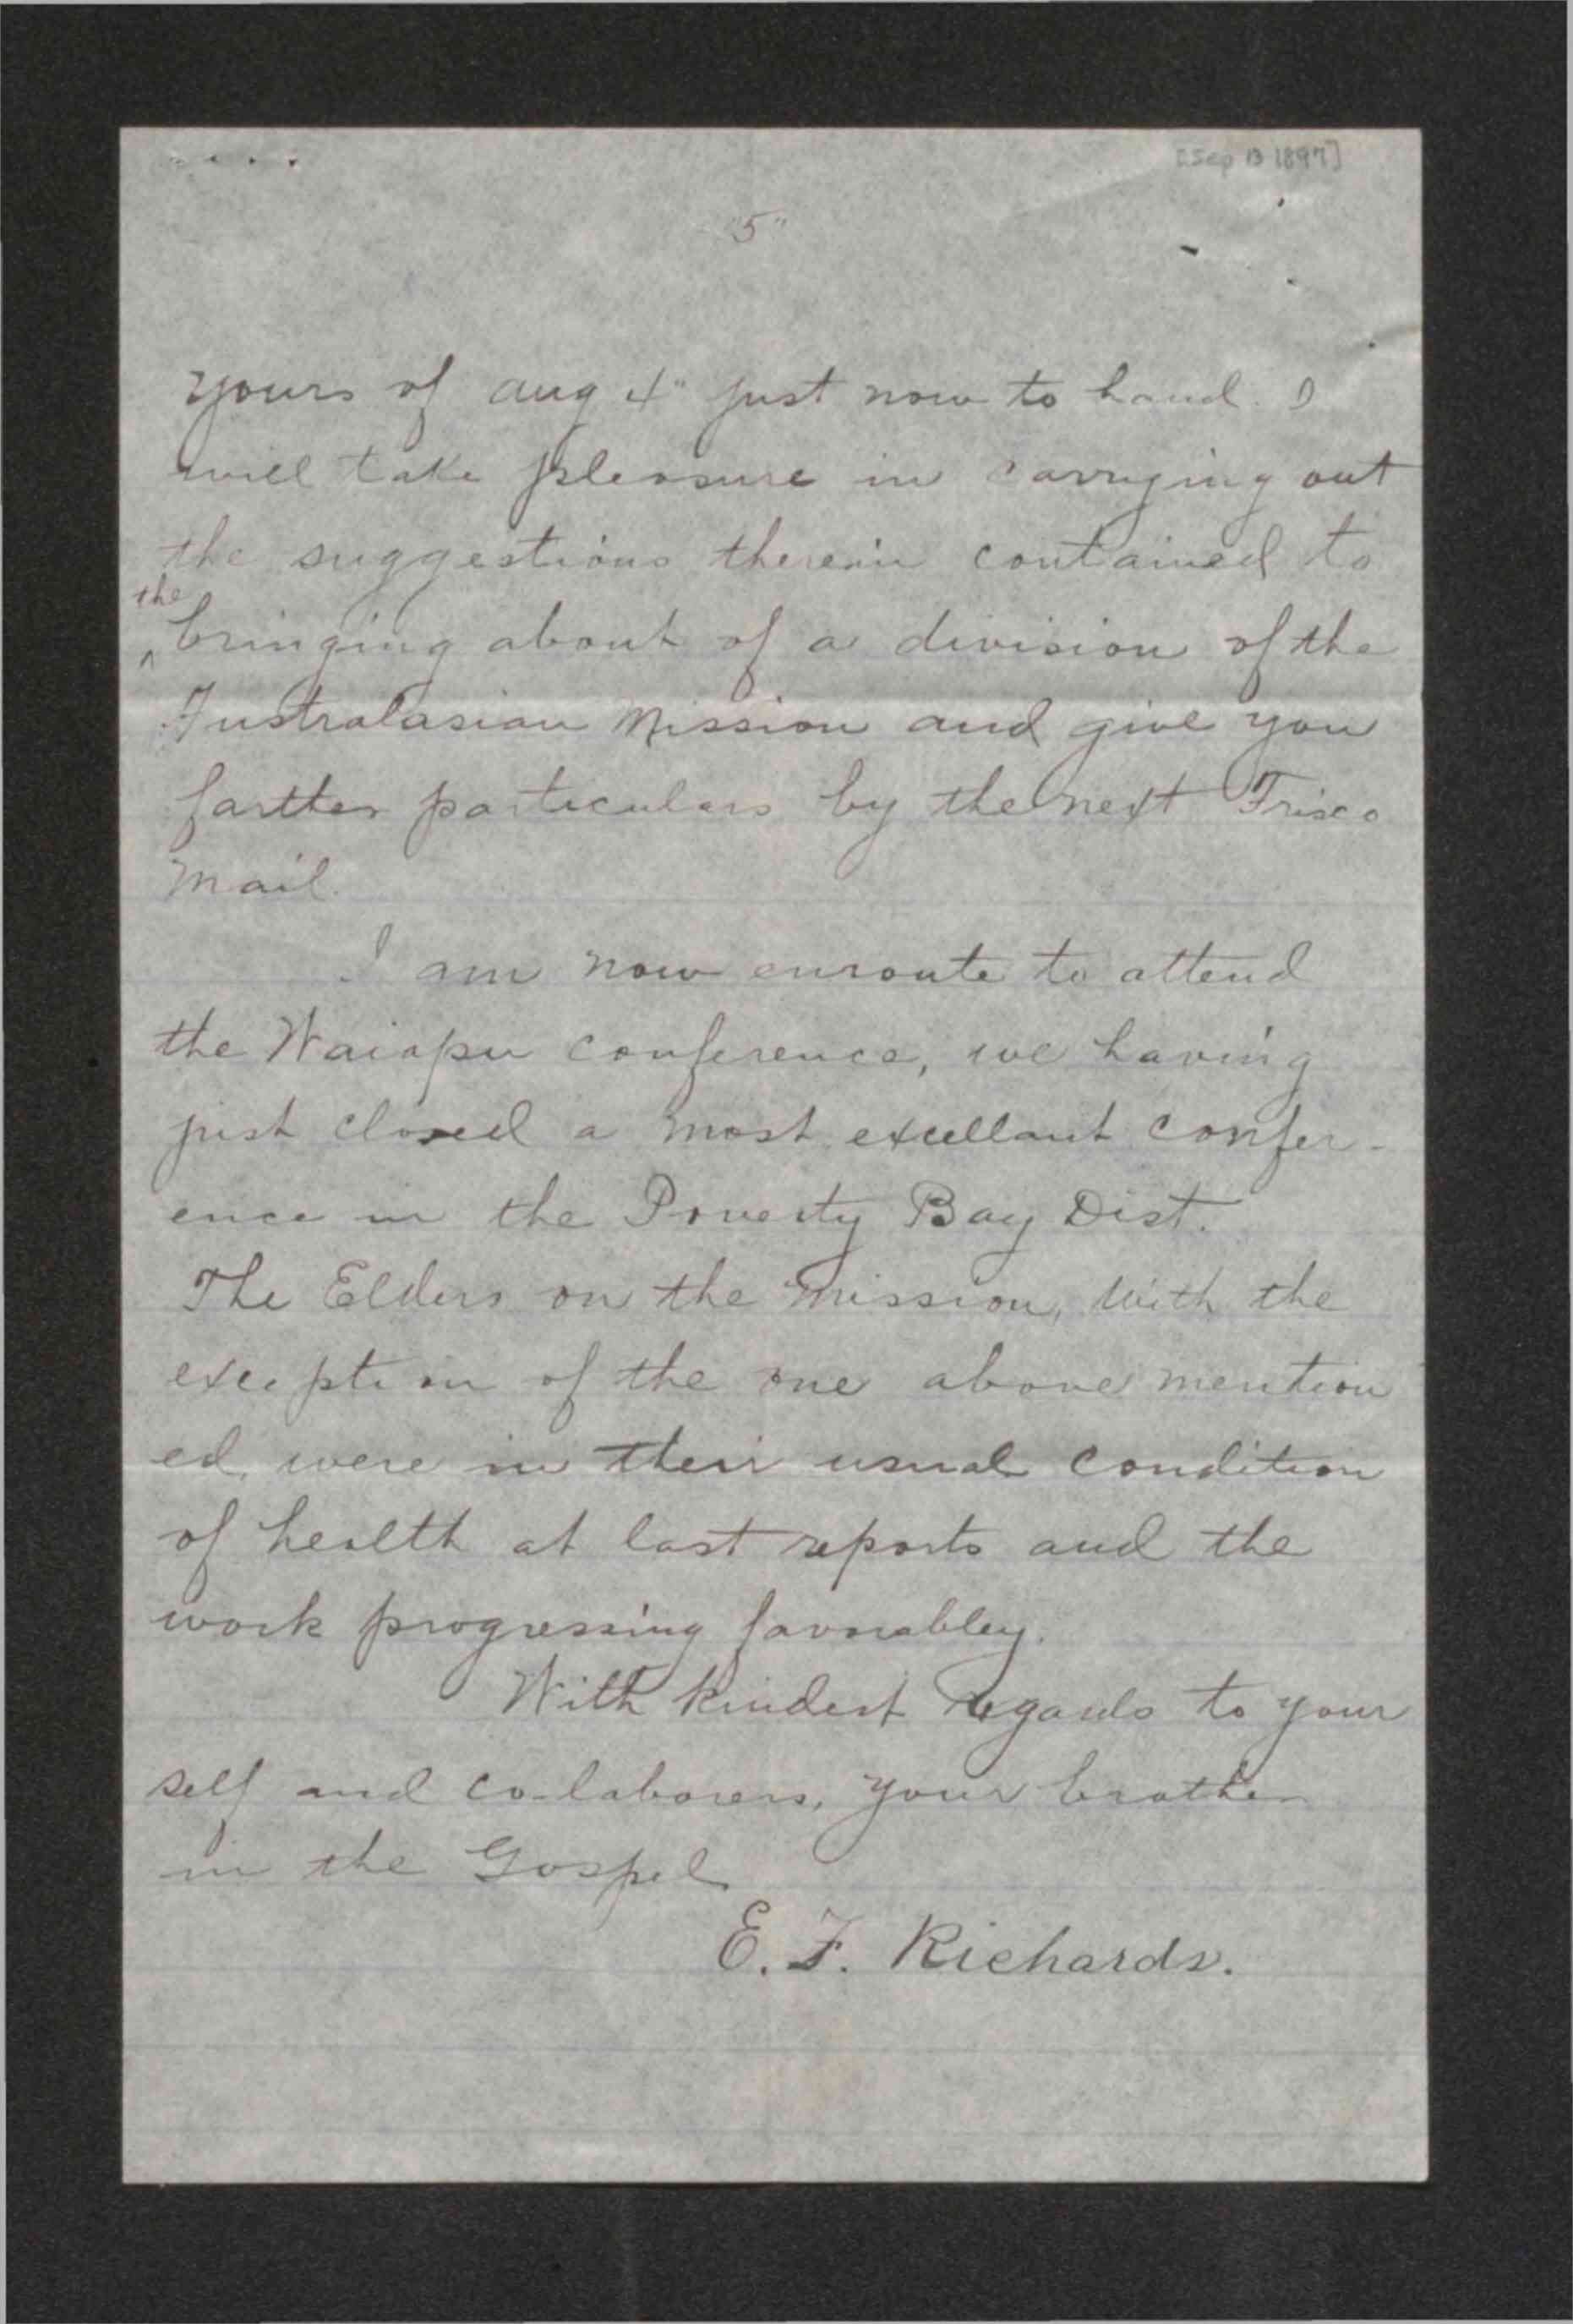 [Sep 13 1897]
"5"
Yours of Aug 4" just now to hand. I
will take pleasure in carrying out
the suggestions therein contained to
the
^ bringing about of a division of the
Australasian Mission and give you
farther particulars by the next Frisco
Mail.
I am now enroute to attend
the Waiapu conference, we having
just closed a most excellant confer-
ence in the Poverty Bay Dist.
The Elders on the mission, with the
exception of the one above mention
ed, were in their usual condition
of health at last reports and the
work progressing favorabley.
With kindest regards to your
self and co-laborers, your brother
in the Gospel
E. F. Richards.